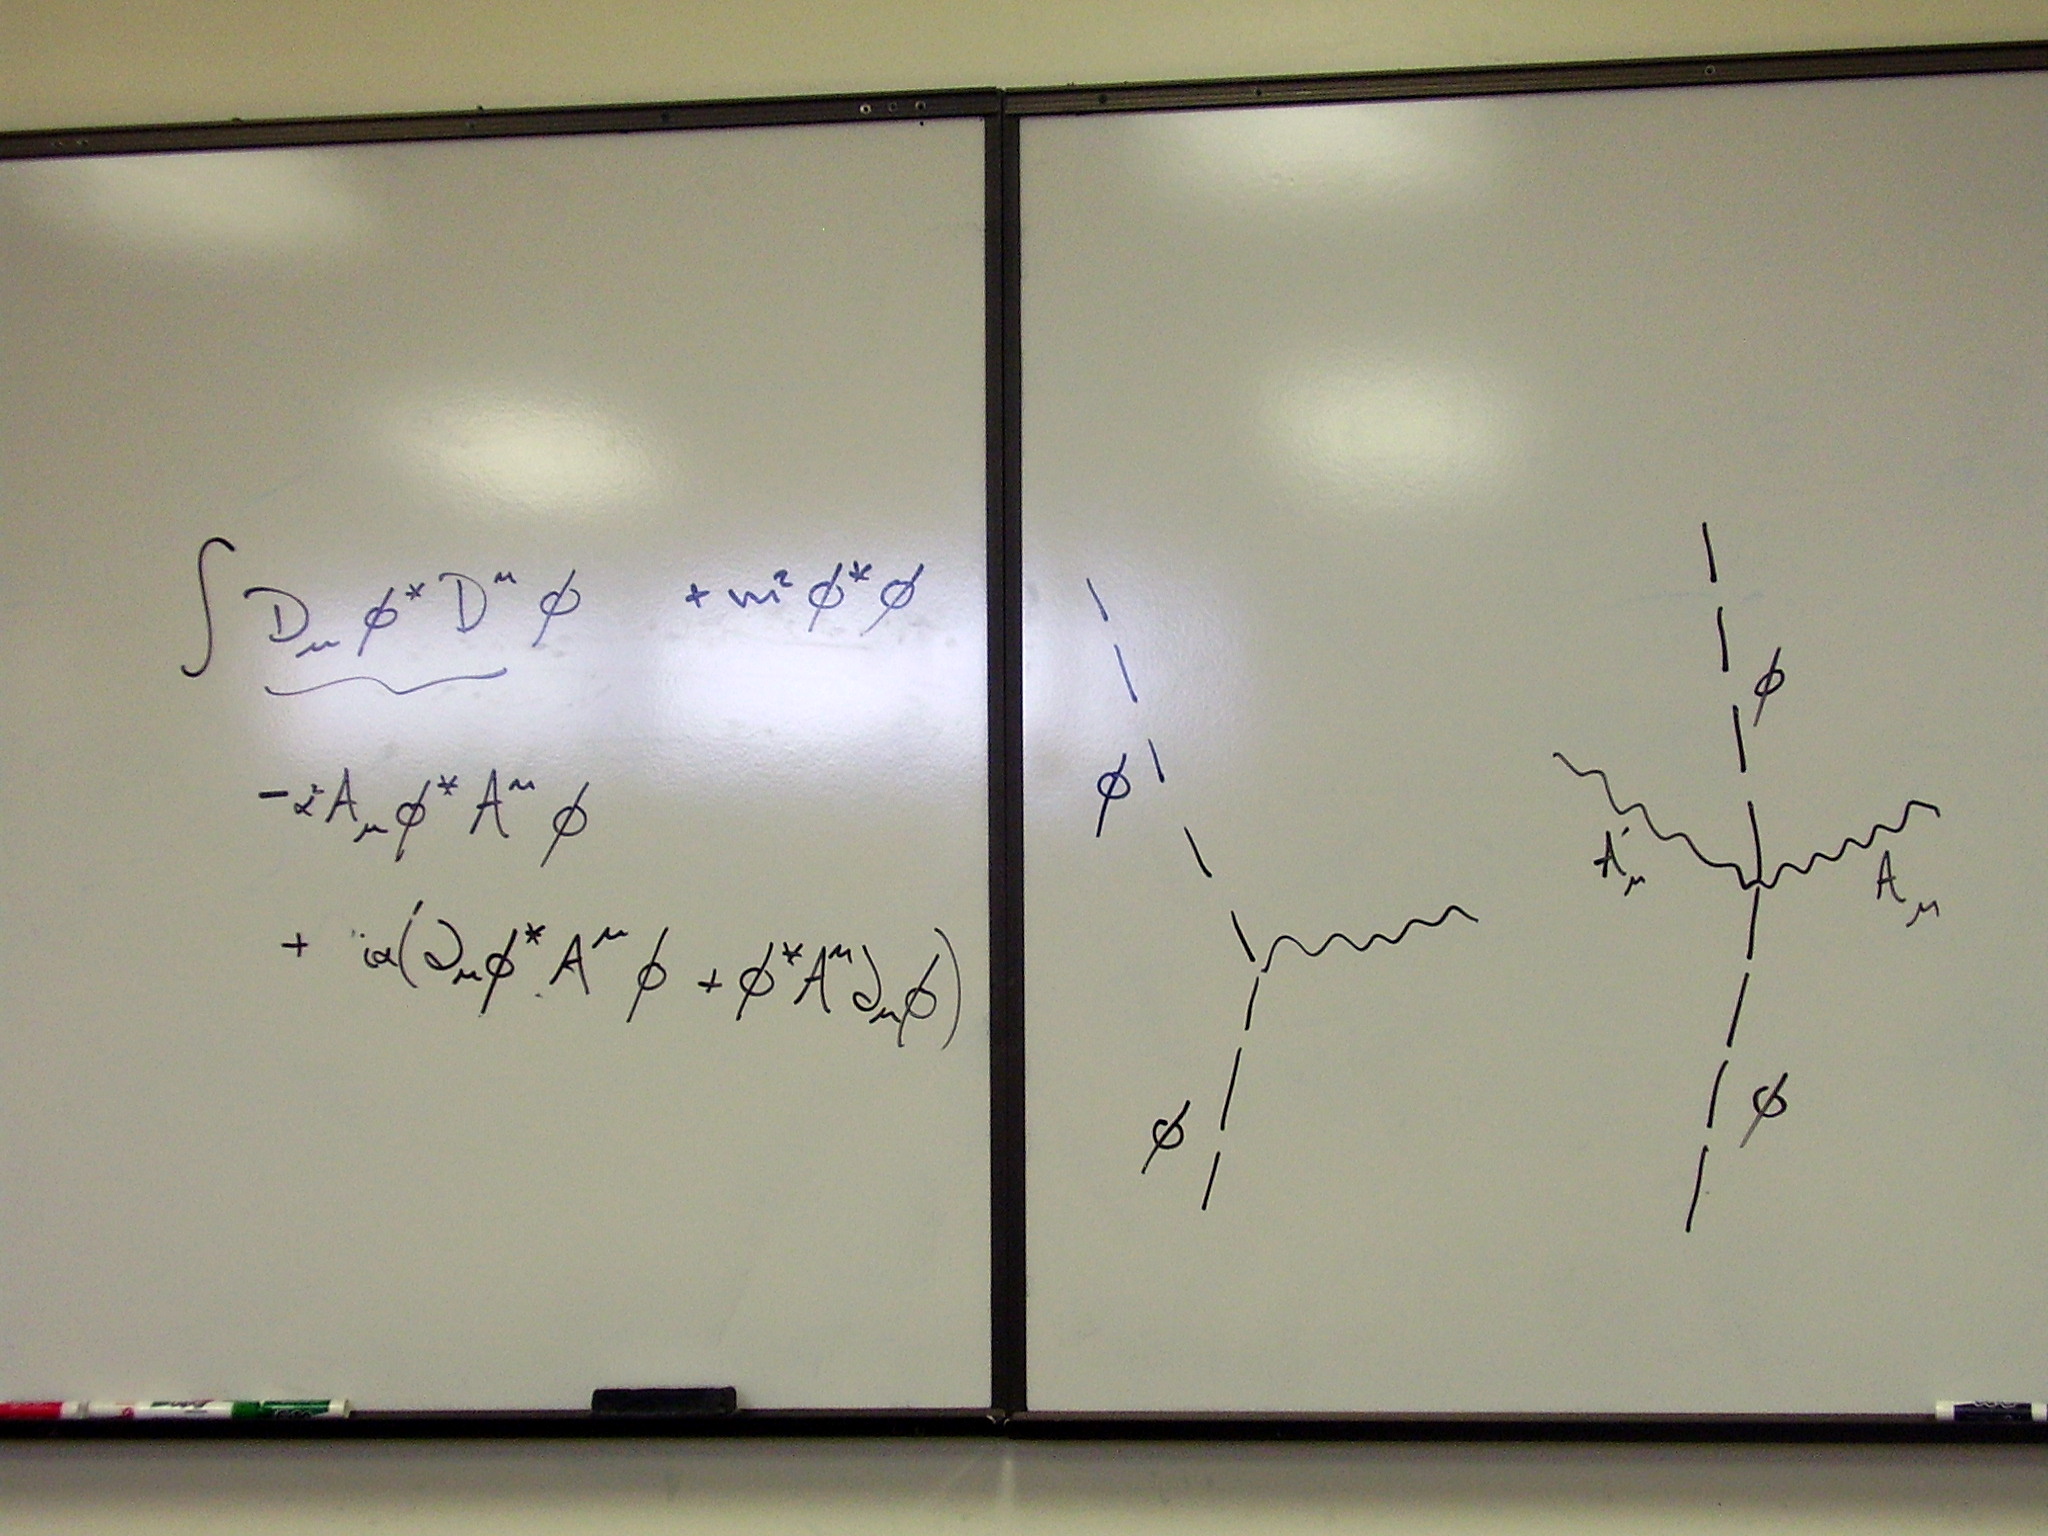 ∫ D_μ ϕ* D^μ ϕ + m² ϕ* ϕ
-α² A_μ ϕ* A^μ ϕ
+ iα(∂_μ ϕ* A^μ ϕ + ϕ* A^μ ∂_μ ϕ)
ϕ
ϕ
ϕ
A'_μ
A_μ
ϕ